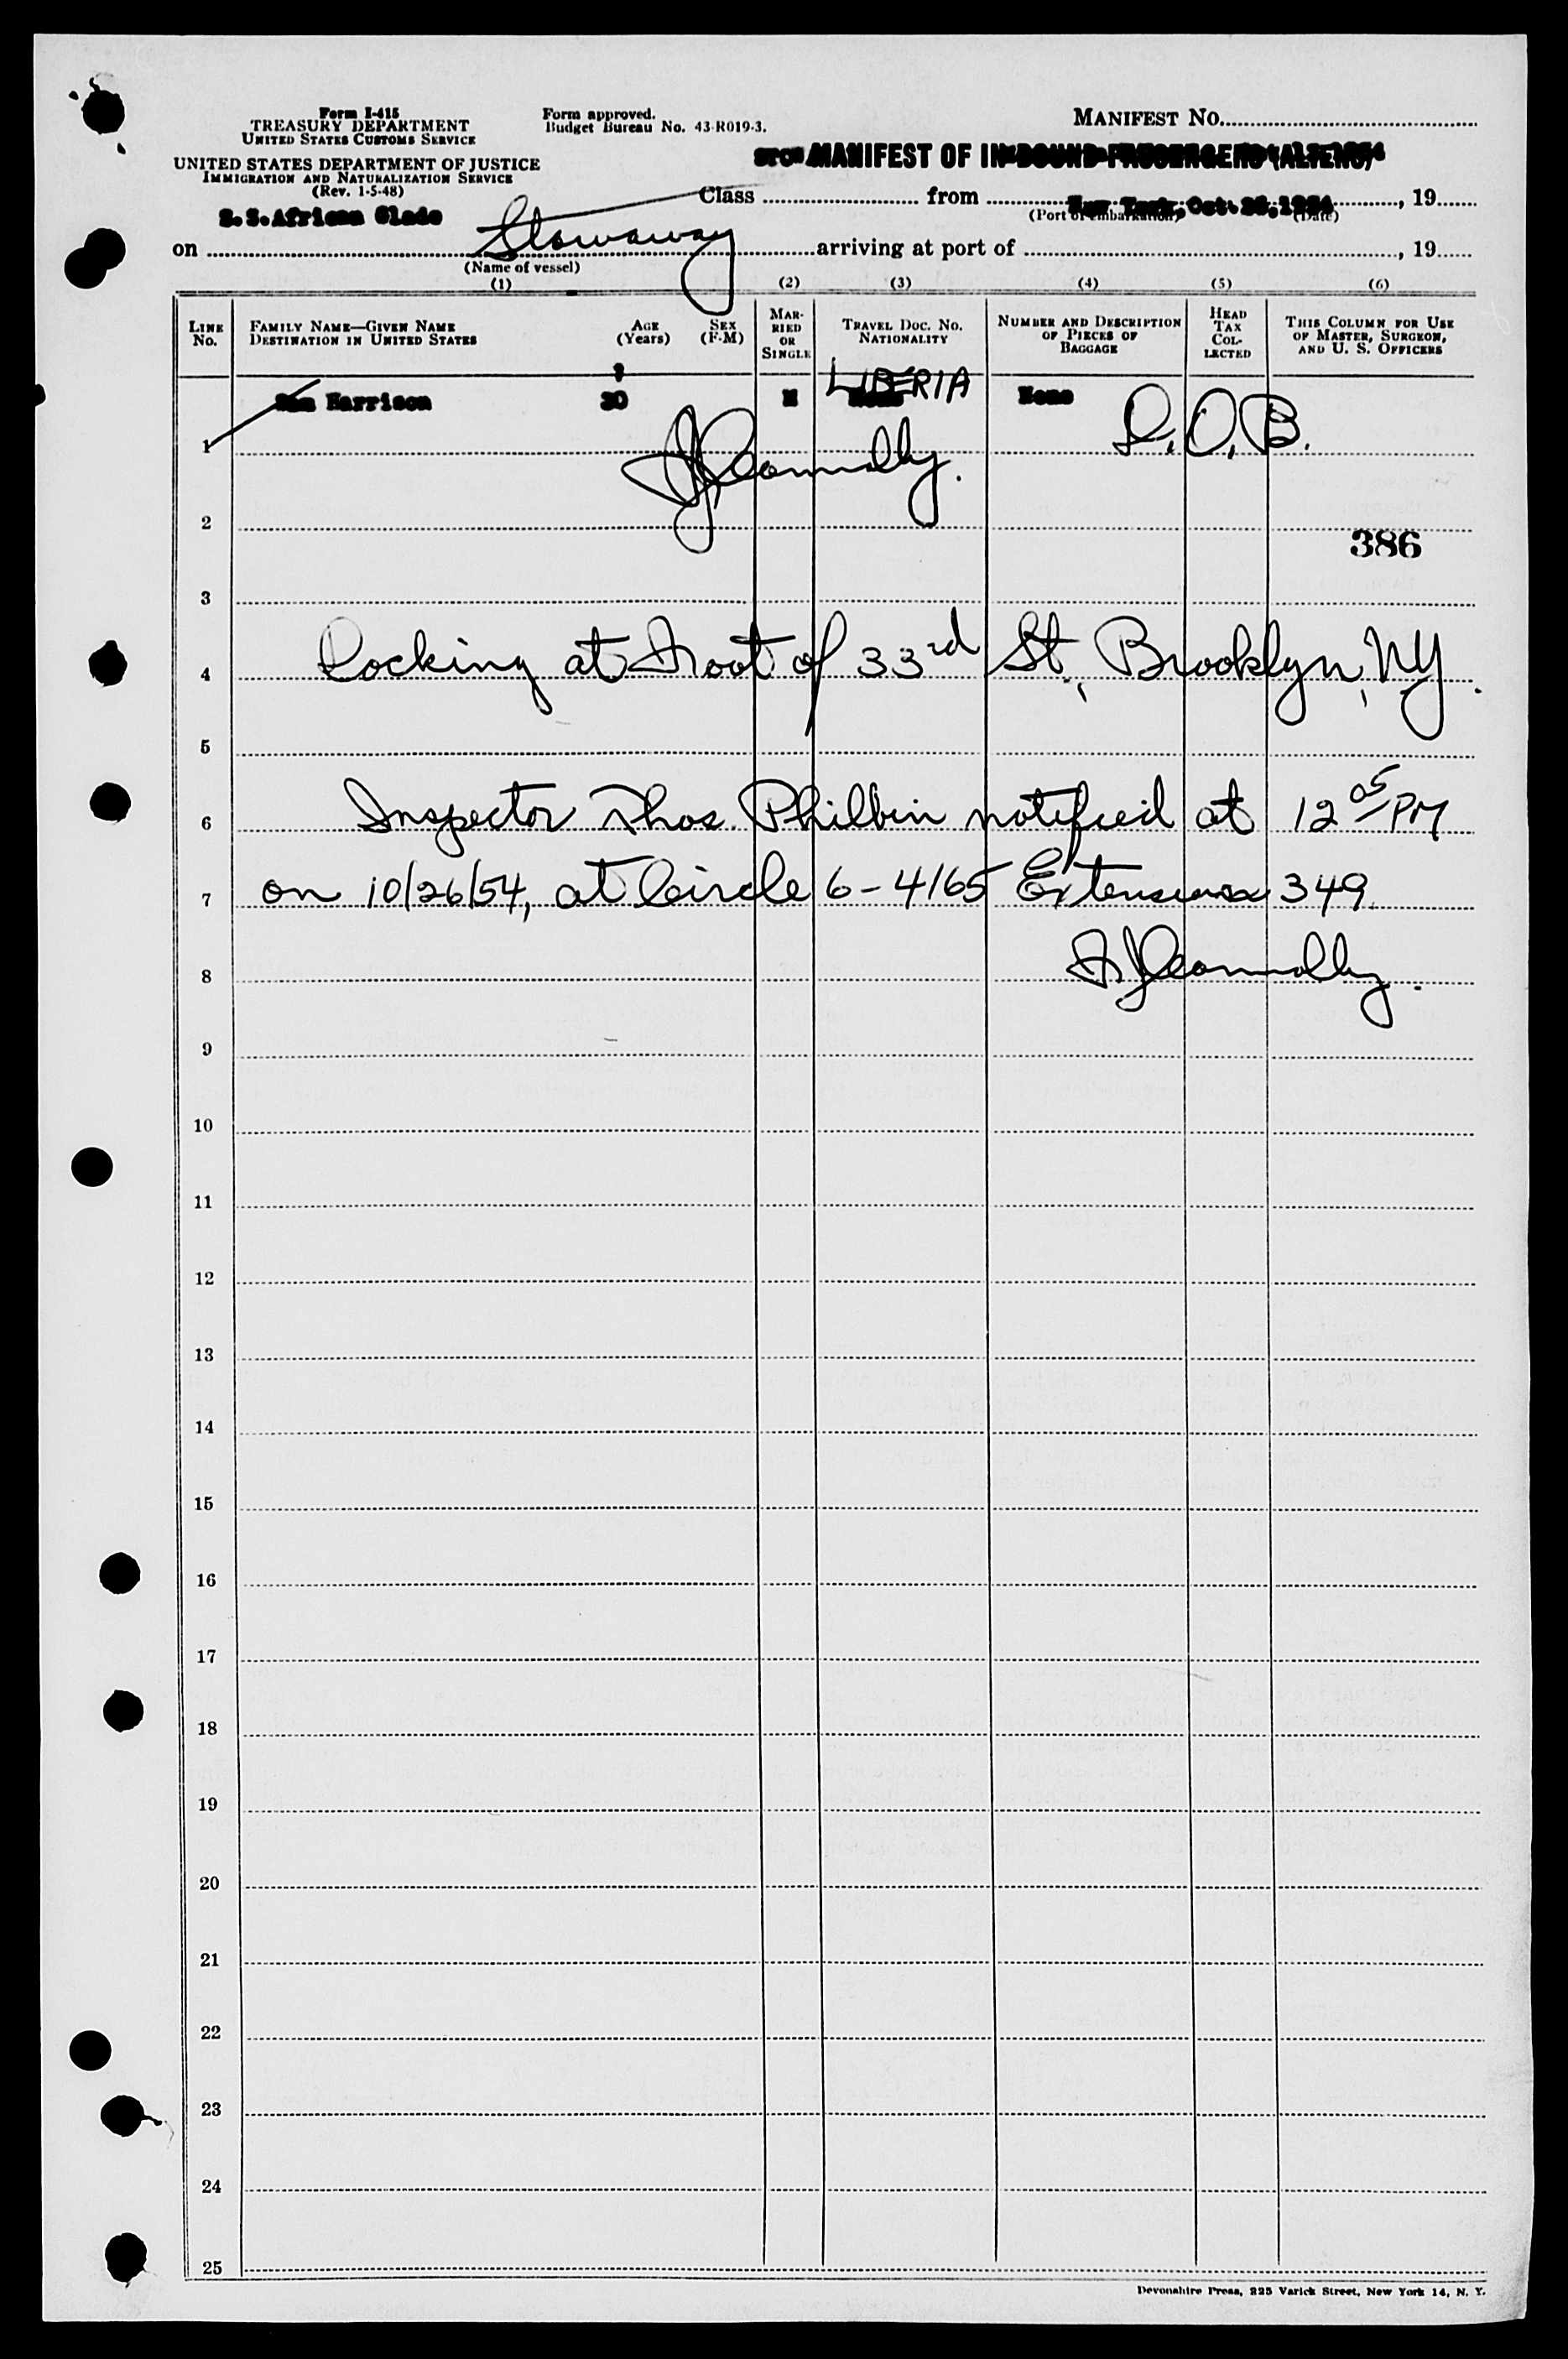 Form I-415
TREASURY DEPARTMENT
UNITED STATES CUSTOMS SERVICE
UNITED STATES DEPARTMENT OF JUSTICE
IMMIGRATION AND NATURALIZATION SERVICE
(Rev. 1-5-48)
Form approved.
Budget Bureau No. 43-R019-3.
MANIFEST No.
MANIFEST OF IN-BOUND PASSENGERS (ALIENS)
Class from New York, Oct. 26, 1954, 19
(Port of embarkation) (Date)
S.S. African Glade
on Stowaway arriving at port of , 19
(Name of vessel)
(1) (2) (3) (4) (5) (6)
LINE No. FAMILY NAME—GIVEN NAME DESTINATION IN UNITED STATES AGE (Years) SEX (F-M) MARRIED OR SINGLE TRAVEL DOC. No. NATIONALITY NUMBER AND DESCRIPTION OF PIECES OF BAGGAGE HEAD TAX COLLECTED THIS COLUMN FOR USE OF MASTER, SURGEON, AND U. S. OFFICERS
?
Sam Harrison 30 M LIBERIA None
1 D.O.B.
FJConnolly.
2
386
3
4 Docking at Foot of 33rd St., Brooklyn, NY.
5
6 Inspector Thos. Philbin notified at 12 05 PM
7 on 10/26/54, at Circle 6-4165 Extension 349
8 FJConnolly.
9
10
11
12
13
14
15
16
17
18
19
20
21
22
23
24
25
Devonshire Press, 225 Varick Street, New York 14, N. Y.